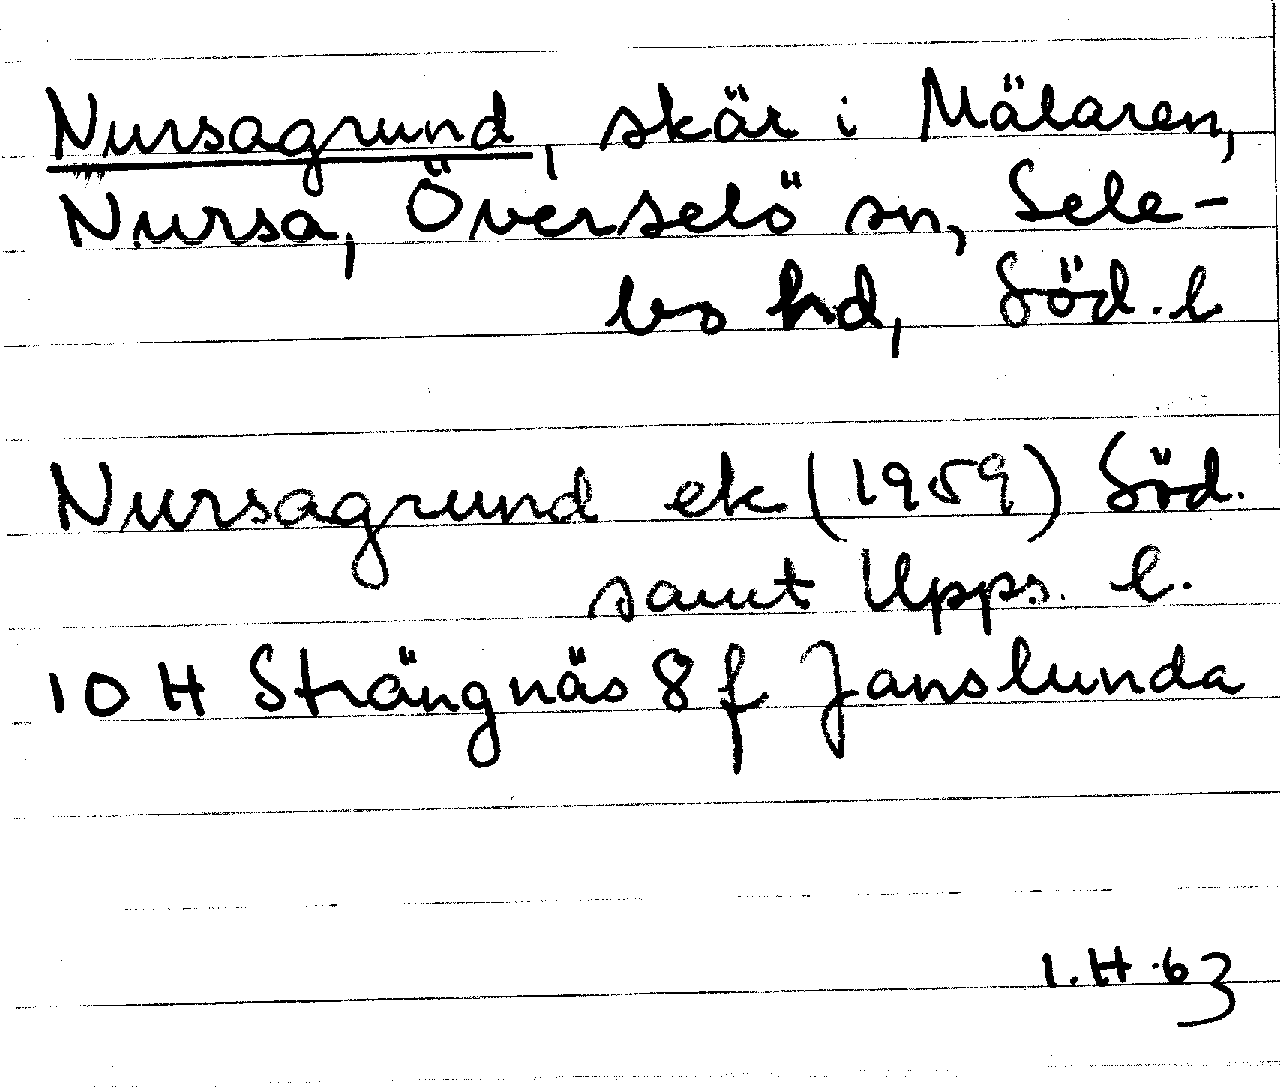 Nursagrund, skär i Mälaren,
Nursa, Överselö sn, Sele-
bo hd, Söd. l
Nursagrund ek (1959) Söd.
samt Upps. l.
10 H Strängnäs 8 f Janslunda
I.H.63